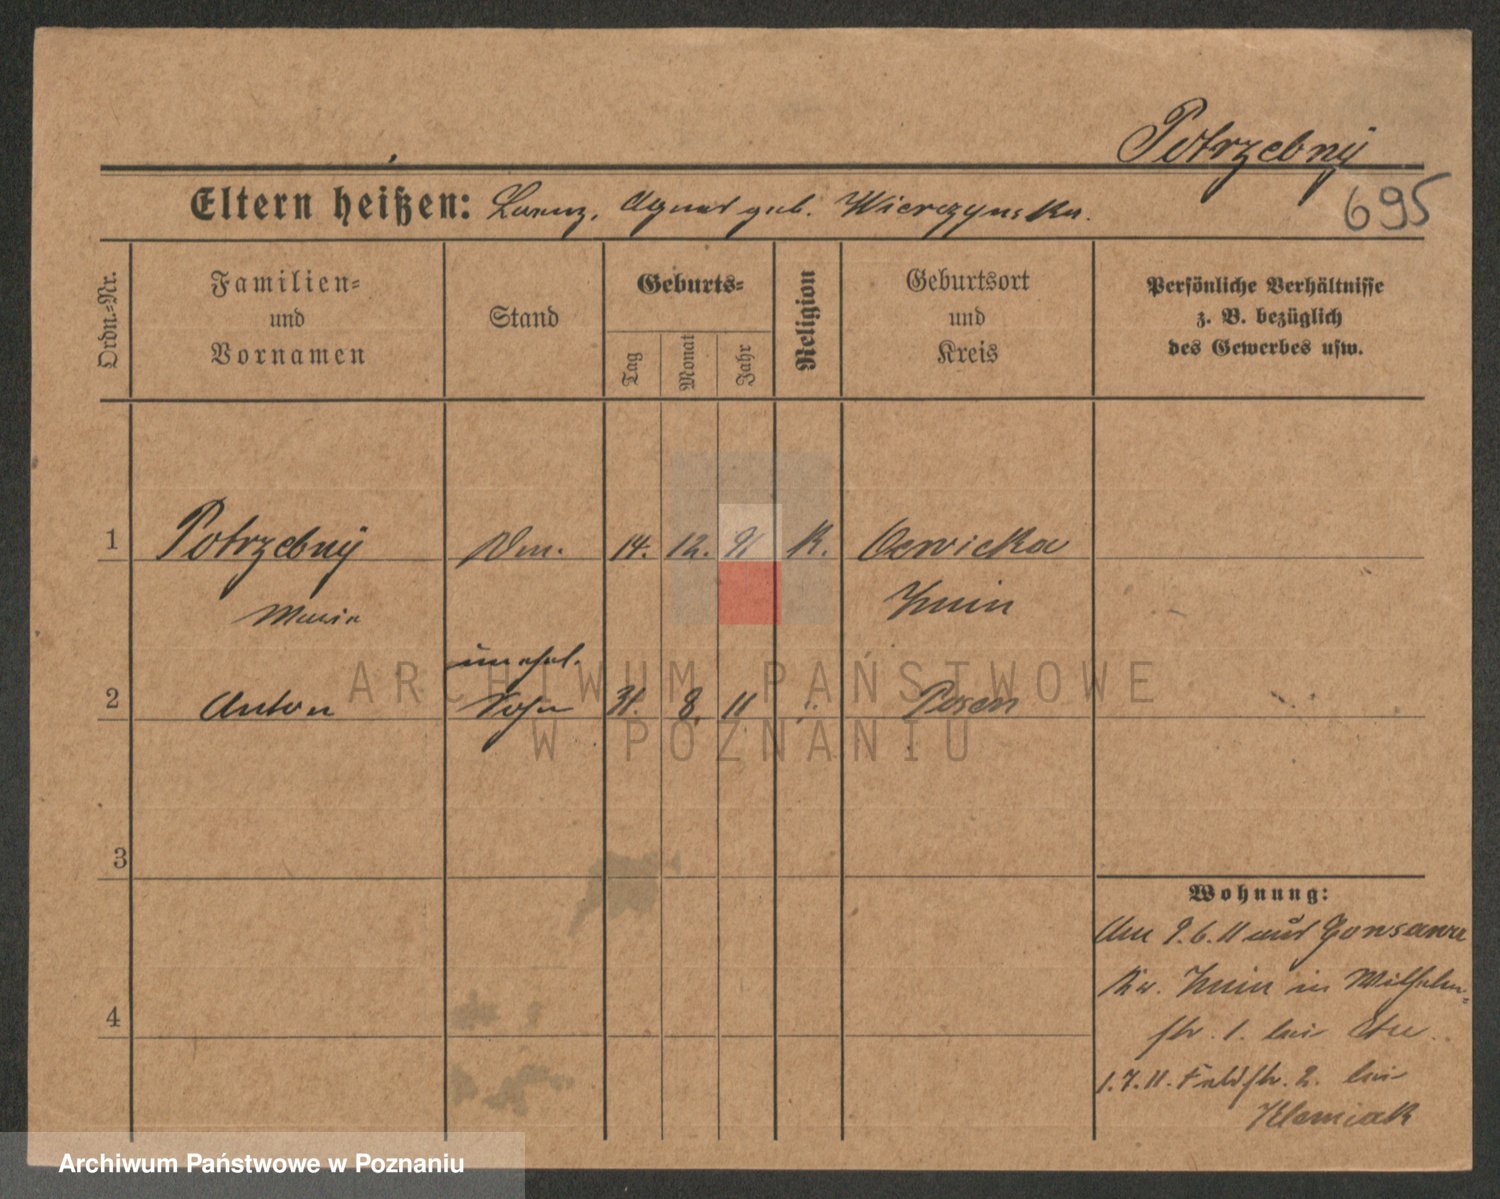 Potrzebny
695
Eltern heißen: Lorenz, Agnes geb. Wierzynska.
Ordn.-Nr.
Familien-
und
Vornamen
Stand
Geburts-
Tag
Monat
Jahr
Religion
Geburtsort
und
Kreis
Persönliche Verhältnisse
z. B. bezüglich
des Gewerbes usw.
1 Potrzebny 14. 12. 91 K.
Znin
Marie
unehel.
2 Anton Sohn 31. 8. 11 " Posen
3
4
Wohnung:
Am 9.6.11 aus Gonsawa
Kr. Znin in Wilhelm-
str. 1. bei
1.7.11. Feldstr. 2. bei
Klemiak
ARCHIWUM PAŃSTWOWE
W POZNANIU
Archiwum Państwowe w Poznaniu